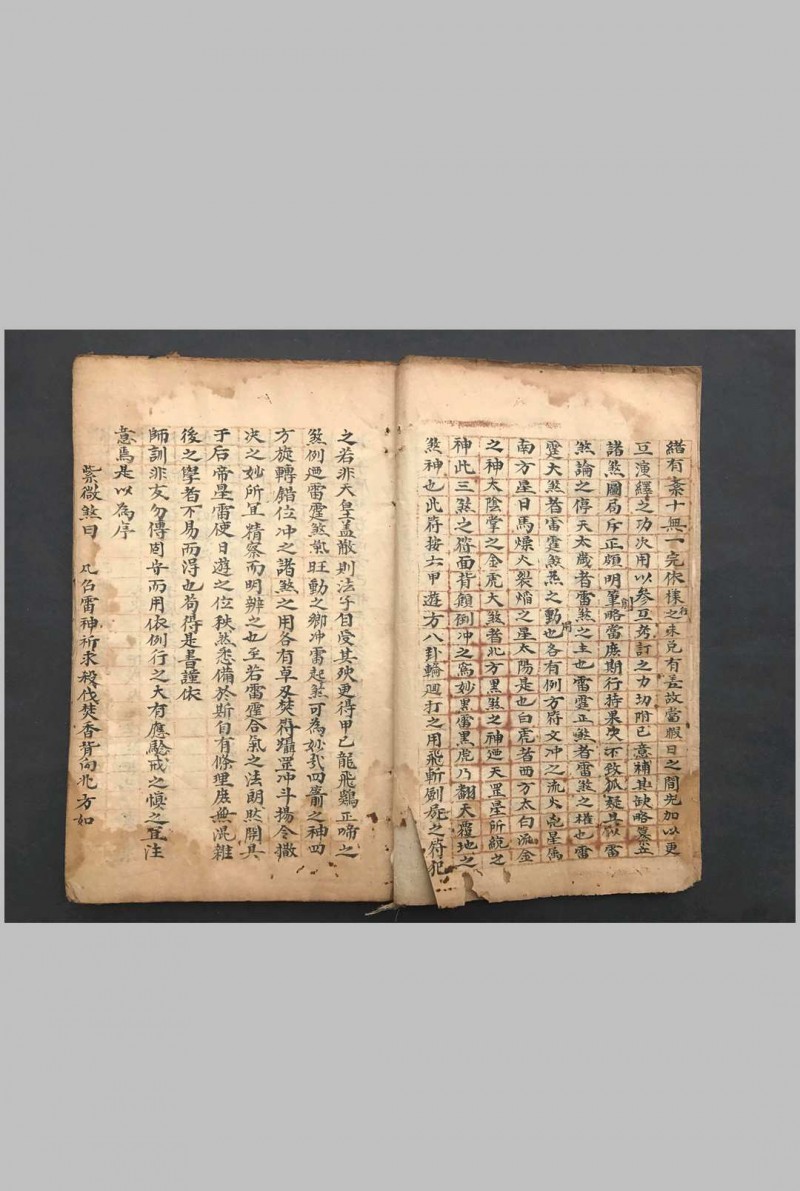 緒有紊十無一完依樣之未免有差故當暇日之間先加以更
互演繹之功次用以參互考訂之力切附已意補其缺略纂出
諸煞圖局斥正頗明筆略當庶期行持果決不致狐疑其以雷
煞論之停天太歲者雷煞之主也雷霆正煞者雷煞之權也雷
霆大煞者雷霆煞炁之動也各有例方符文冲之流火兇星馬
南方星日馬燥火裂焰之星太陽是也白虎者西方太白流金
之神太陰掌之金虎大煞者北方黑煞之神迺天罡星所統之
神此三煞之符面背顛倒冲之為妙黑雷黑虎乃翻天覆地之
煞神也此符按六甲遊方八卦輪廻打之用飛斬劍屍之符犯
之若非天皇盖散則法子自受其殃更得甲己龍飛鷄正啼之
煞例迺雷霆煞氣旺動之鄉冲雷起煞可為妙哉四箭之神四
方旋轉錯位冲之諸煞之用各有草及焚符躡罡冲斗揚令撒
决之妙所宜精察而明辨之也至若雷霆合氣之法朗然開具
于后帝星雷使日遊之位秧煞悉備於斯自有條理庶無混雜
後之學者不易而得也苟得是書謹依
師訓非友勿傳固守而用依例行之大有應驗戒之慎之宜注
意馬是以為序
紫微煞曰 凡召雷神祈求殺伐焚香背向北方如